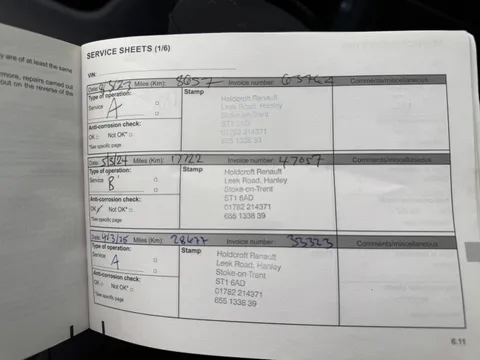 y are of at least the same
more, repairs carried out
out on the reverse of the
SERVICE SHEETS (1/6)
VIN:
Date: Miles (Km): 8657 Invoice number:
Comments/miscellaneous
Type of operation:
Service
A
Anti-corrosion check:
OK □ Not OK* □
*See specific page
Stamp
Holdcroft Renault
Leek Road, Hanley
Stoke-on-Trent
ST1 6AD
01782 214371
655 1338 39
Date: 5/3/24 Miles (Km): 17122 Invoice number: 47057
Comments/miscellaneous
Type of operation:
Service
B
Anti-corrosion check:
OK Not OK* □
*See specific page
Stamp
Holdcroft Renault
Leek Road, Hanley
Stoke-on-Trent
ST1 6AD
01782 214371
655 1338 39
Date: 4/3/25 Miles (Km): 28477 Invoice number: 53323
Comments/miscellaneous
Type of operation:
Service
A
Anti-corrosion check:
OK □ Not OK* □
*See specific page
Stamp
Holdcroft Renault
Leek Road, Hanley
Stoke-on-Trent
ST1 6AD
01782 214371
655 1338 39
6.11